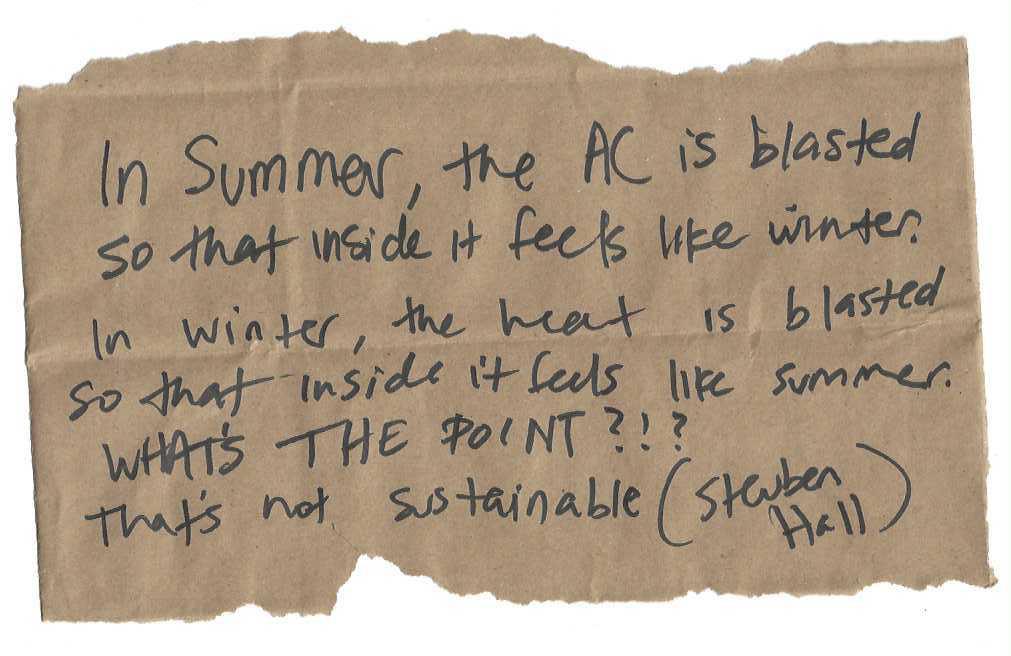 In Summer, the AC is blasted
so that inside it feels like winter.
In winter, the heat is blasted
so that inside it feels like summer.
WHAT'S THE POINT?!?
That's not sustainable (Steuben
Hall)